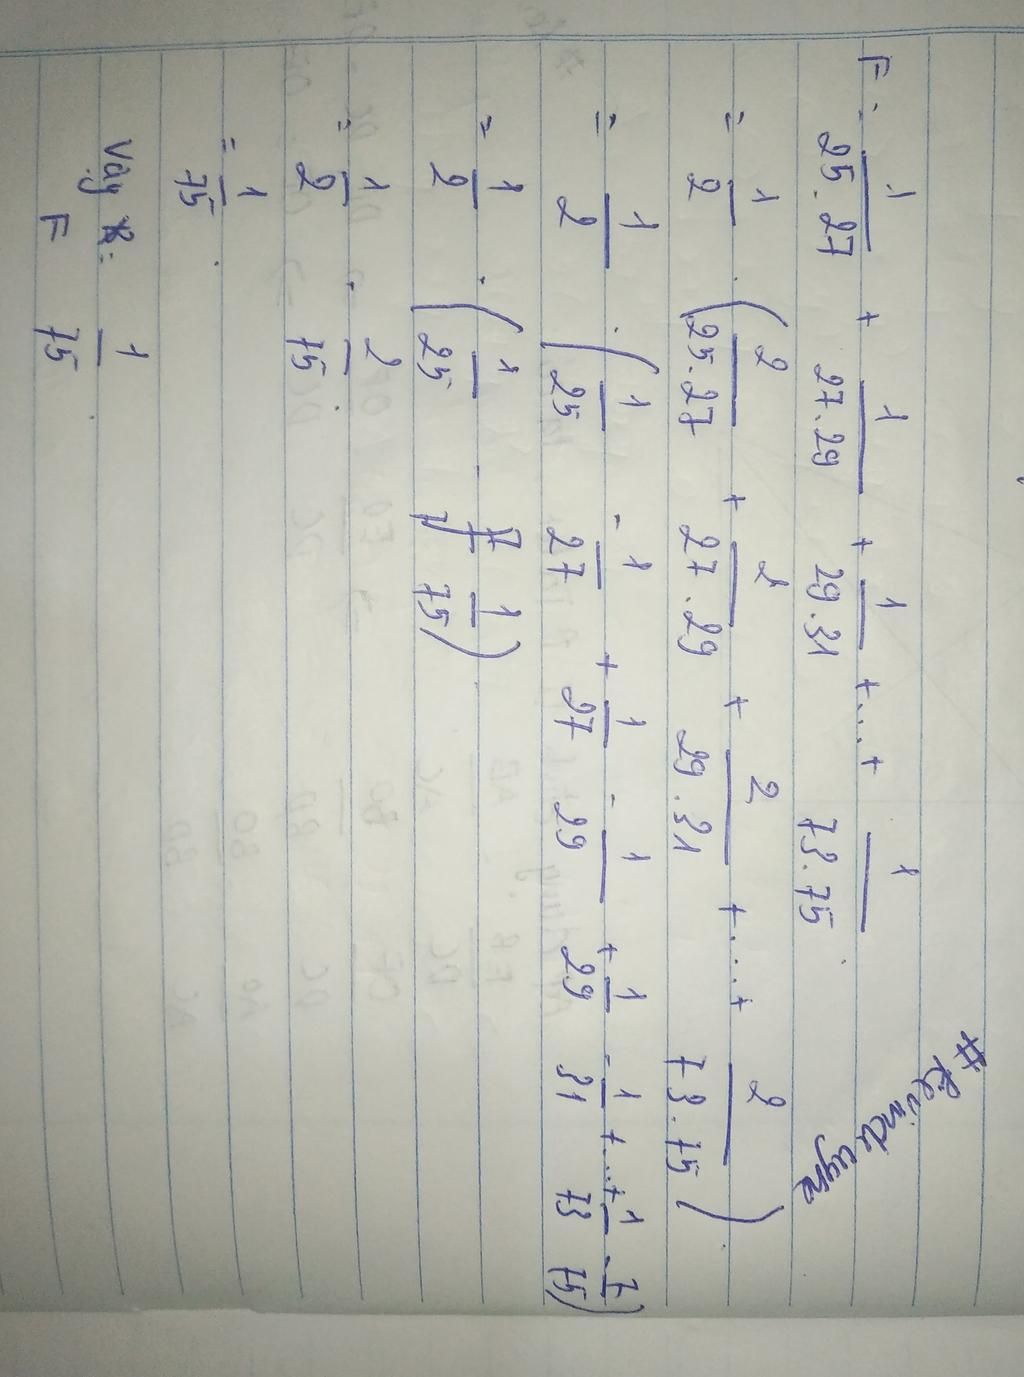 #Reindeyne
F = 1/25.27 + 1/27.29 + 1/29.31 + ... + 1/73.75.
= 1/2 . (2/25.27 + 2/27.29 + 2/29.31 + ... + 2/73.75).
= 1/2 . (1/25 - 1/27 + 1/27 - 1/29 + 1/29 - 1/31 + ... + 1/73 - 1/75)
= 1/2 . (1/25 - 1/75)
= 1/2 . 2/75.
= 1/75.
Vậy F = 1/75.